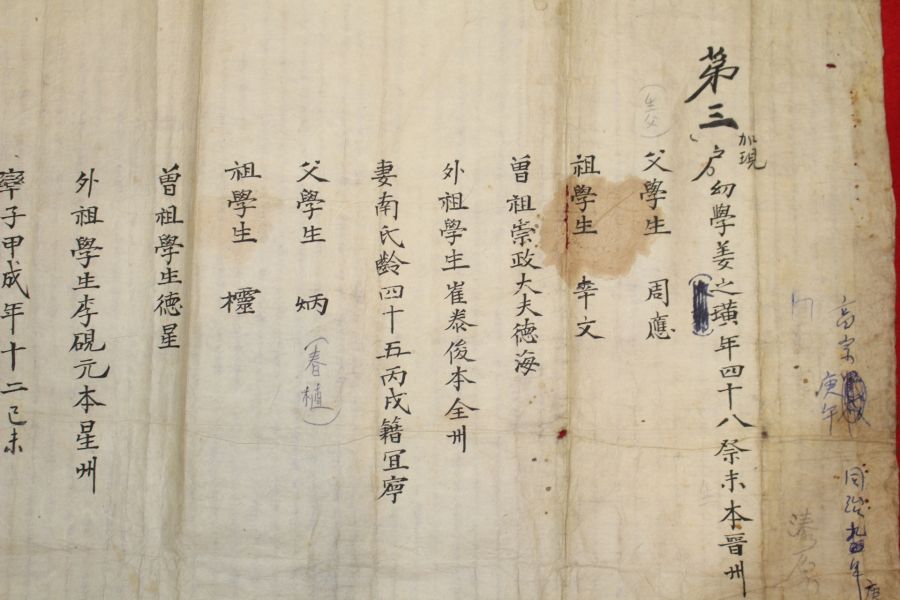 高宗
庚午
同治九年庚
第三戶幼學姜之璜年四十八癸未本晋州
加現
(生父)
父學生 周應
祖學生 文
曾祖崇政大夫德海
外祖學生崔泰俊本全州
妻南氏齡四十五丙戌籍宜寧
父學生 炳 (春植)
祖學生
曾祖學生德星
外祖學生李硯元本星州
率子甲成年十二己未